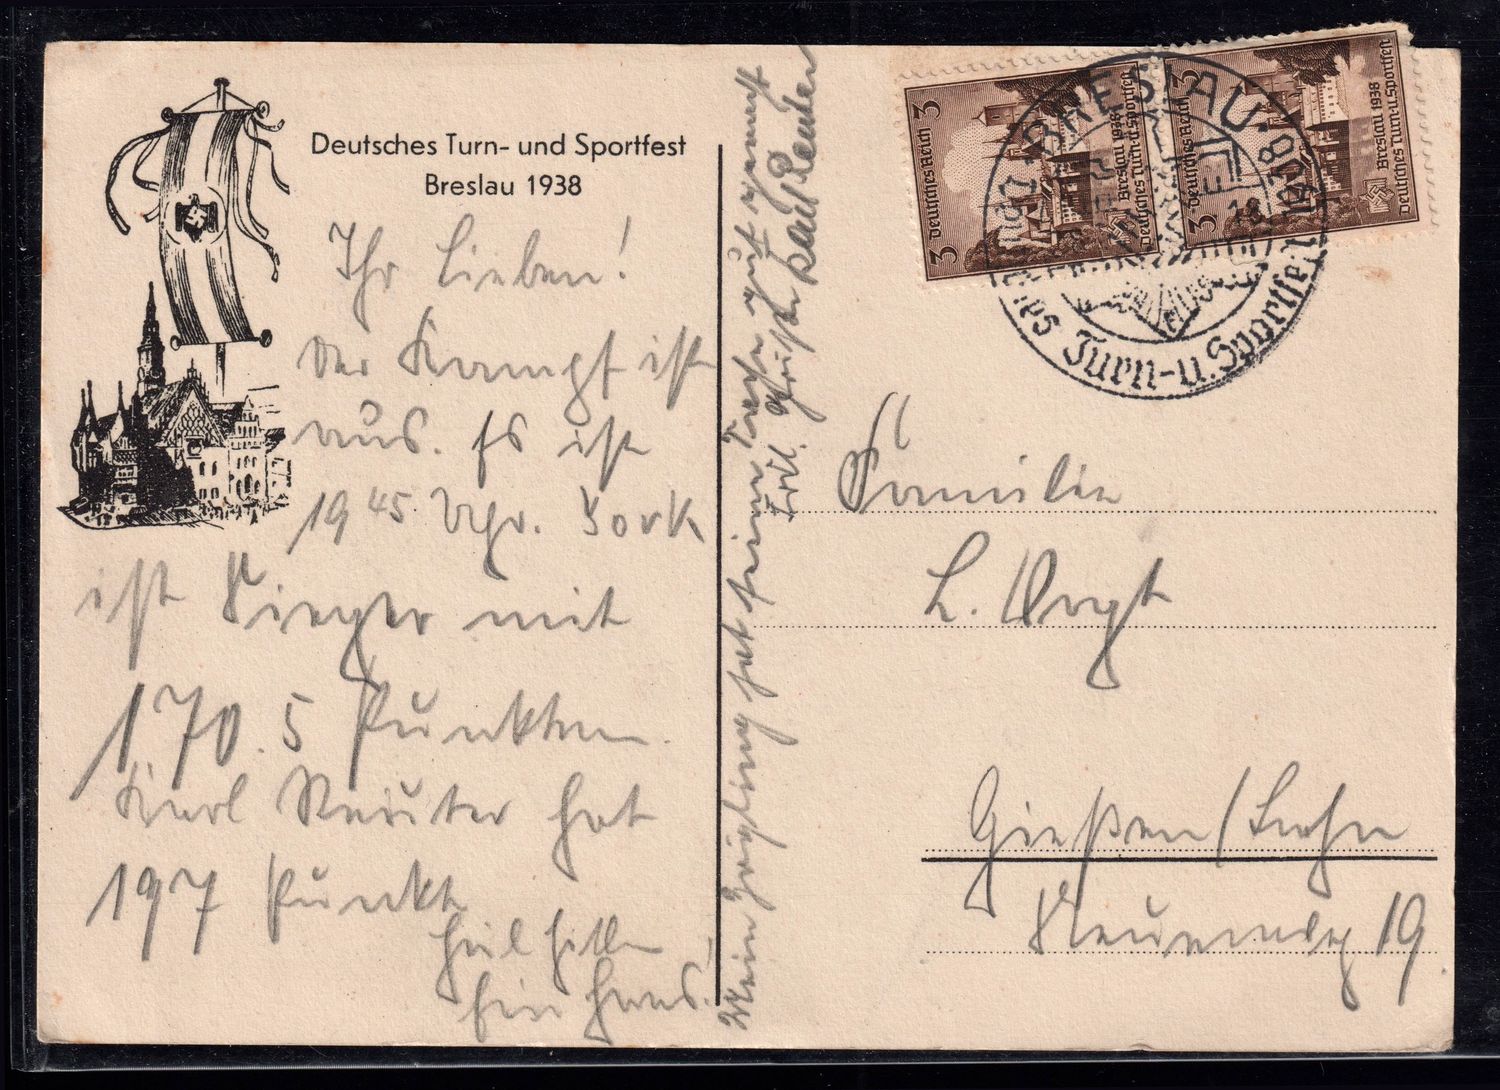 Deutsches Turn- und Sportfest
Breslau 1938
Ihr Lieben!
Der Kampf ist
aus. Es ist
19 45 Uhr.
ist Sieger mit
170.5 Punkten.
Karl Reuter hat
197 Punkt
Heil Hitler
Hans.
Mein hat seine Sache gut gemacht
3 Deutsches Reich
Breslau 1938
Deutsches Turn-u. Sportfest
3 Deutsches Reich
Breslau 1938
Deutsches Turn-u. Sportfest
BRESLAU
1938
es Turn-u. Sportfe
Familie
L. Vogt
Gießen/Lahn
19